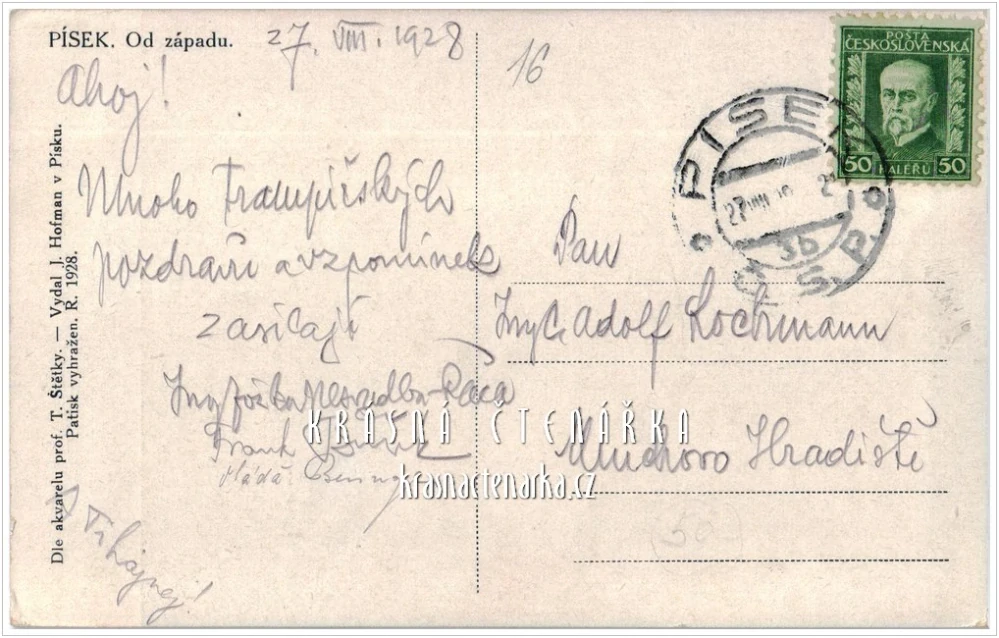 PÍSEK. Od západu.
27. VIII. 1928
16
Ahoj!
Mnoho Trampířských
pozdravů a vzpomínek
zasílají
Ing
Frank
Mládě
Dle akvarelu prof. T. Štětky. — Vydal J. Hofman v Písku.
Patisk vyhražen. R. 1928.
POŠTA
ČESKOSLOVENSKÁ
50 HALÉŘŮ 50
PÍSEK
27 VIII
3b
Č.S.P.
Pan
Adolf Lochmann
Mnichovo Hradiště
(50
KRÁSNÁ ČTENÁŘKA
krasnactenarka.cz